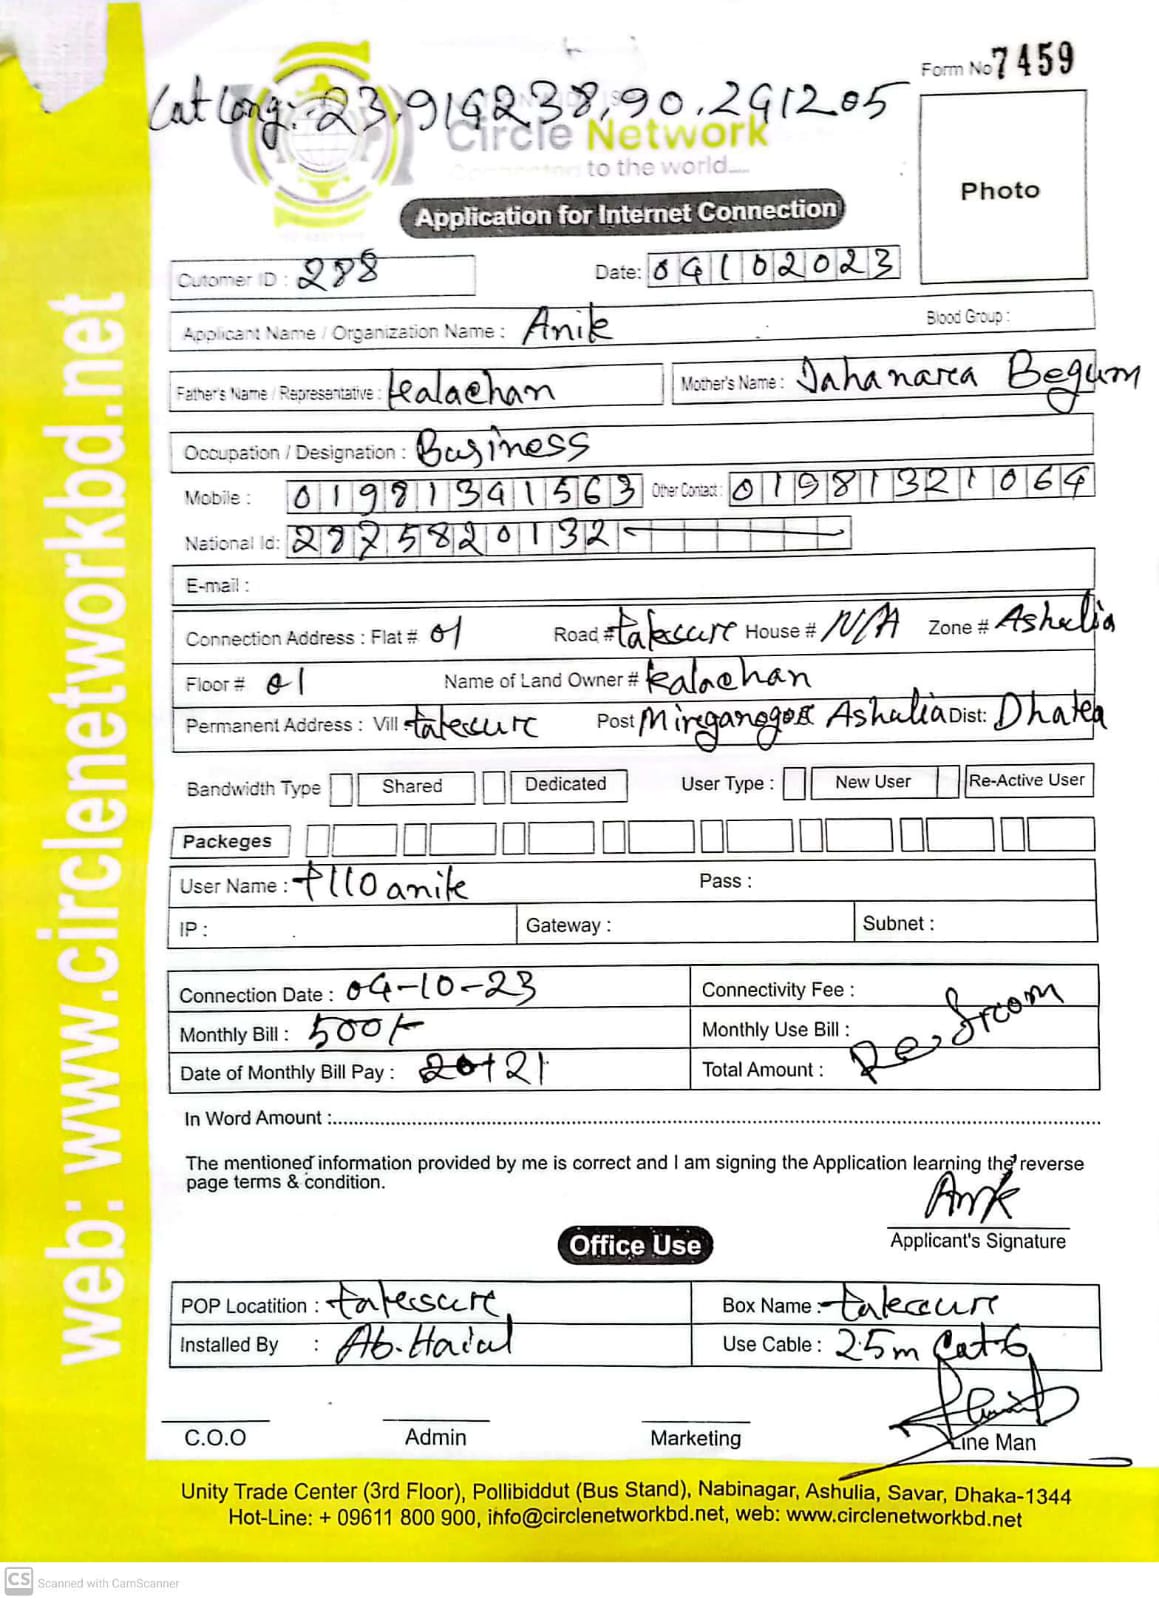 Form No 7459
Lat Long:- 23.914238, 90.241205
Circle Network
to the world....
Photo
Application for Internet Connection
Cutomer ID : 288
Date: 04102023
Applicant Name / Organization Name : Anik
Blood Group :
Father's Name / Representative : kalachan
Mother's Name : Jahanara Begum
Occupation / Designation : Business
Mobile : 01981341563 Other Contact : 01981321064
National Id: 2875820132
E-mail :
Connection Address : Flat # 01 Road # House # N/A Zone # Ashulia
Floor # 01 Name of Land Owner # kalachan
Permanent Address : Vill Post Ashulia Dist: Dhaka
Bandwidth Type Shared Dedicated User Type : New User Re-Active User
Packeges
User Name : t110anik Pass :
IP : Gateway : Subnet :
Connection Date : 04-10-23 Connectivity Fee :
Monthly Bill : 500/- Monthly Use Bill :
Date of Monthly Bill Pay : 21 Total Amount :
In Word Amount :
The mentioned information provided by me is correct and I am signing the Application learning the reverse
page terms & condition.
Anik
Applicant's Signature
Office Use
POP Locatition : Box Name :
Installed By : Use Cable : 25m Cat-6
C.O.O Admin Marketing Line Man
web: www.circlenetworkbd.net
Unity Trade Center (3rd Floor), Pollibiddut (Bus Stand), Nabinagar, Ashulia, Savar, Dhaka-1344
Hot-Line: + 09611 800 900, info@circlenetworkbd.net, web: www.circlenetworkbd.net
CS Scanned with CamScanner